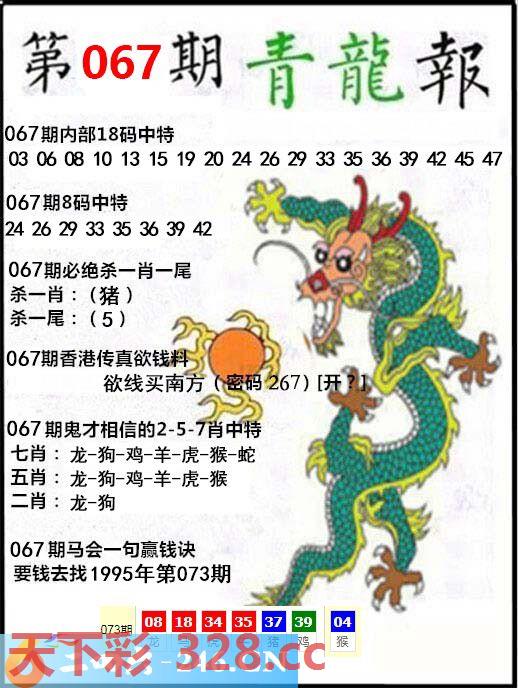 第067期青龍報
067期内部18码中特
03 06 08 10 13 15 19 20 24 26 29 33 35 36 39 42 45 47
067期8码中特
24 26 29 33 35 36 39 42
067期必绝杀一肖一尾
杀一肖：（猪）
杀一尾：（5）
067期香港传真欲钱料
欲线买南方（密码 267）[开？]
067期鬼才相信的2-5-7肖中特
七肖：龙-狗-鸡-羊-虎-猴-蛇
五肖：龙-狗-鸡-羊-虎-猴
二肖：龙-狗
067期马会一句赢钱诀
要钱去找1995年第073期
073期 08 18 34 35 37 39 04
龙 猪 鸡 猴
天下彩-328.cc